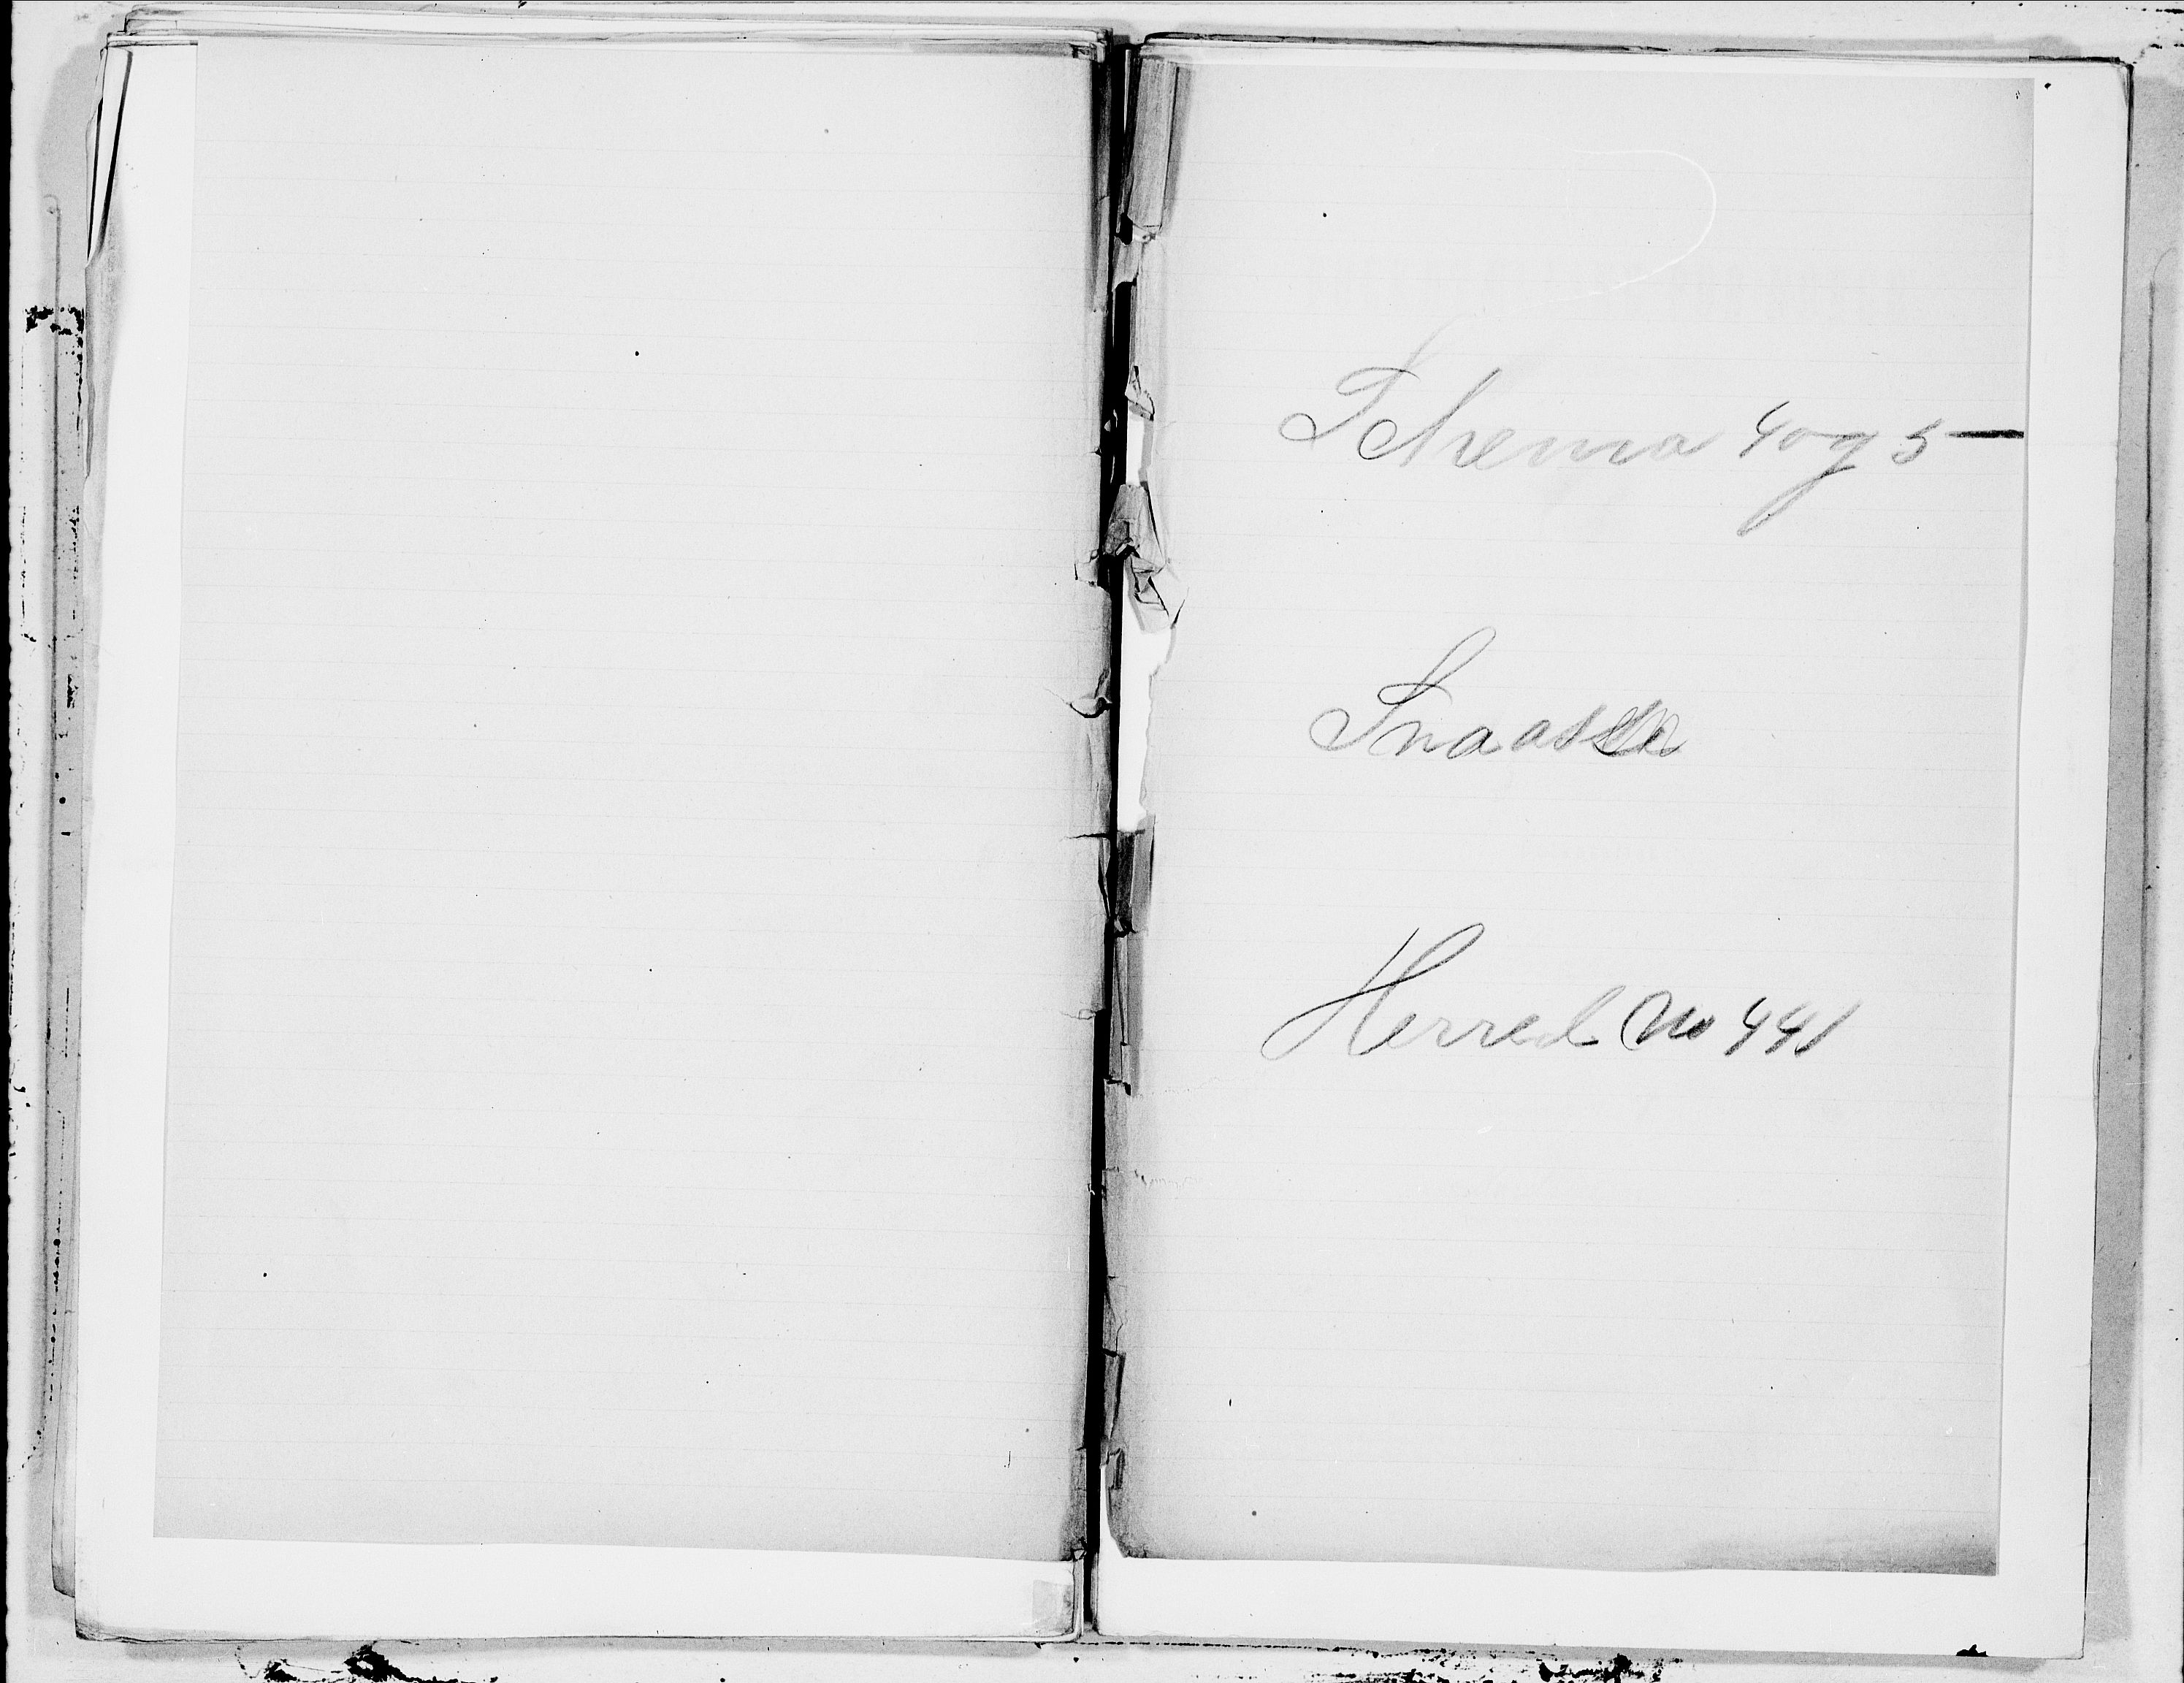 Schema 4 og 5
Snaasen
Herred No 441